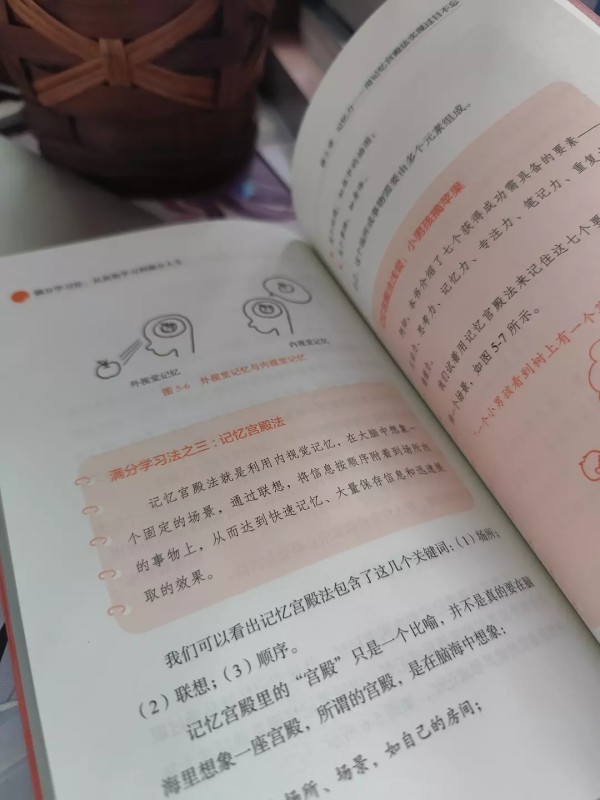 外视觉记忆
内视觉记忆
图 5-6 外视觉记忆与内视觉记忆
满分学习法之三：记忆宫殿法
记忆宫殿法就是利用内视觉记忆，在大脑中想象一
个固定的场景，通过联想，将信息按顺序附着到场所内
的事物上，从而达到快速记忆、大量保存信息和迅速提
取的效果。
我们可以看出记忆宫殿法包含了这几个关键词：（1）场所；
（2）联想；（3）顺序。
记忆宫殿里的“宫殿”只是一个比喻，并不是真的要在脑
海里想象一座宫殿，所谓的宫殿，是在脑海中想象：
场所、场景，如自己的房间；
事物需要由多个元素组成。
小男孩摘苹果
介绍了七个获得成功需具备的要素——
思考力、记忆力、专注力、笔记力、重复
我们试着用记忆宫殿法来记住这七个要
一个场景，如图 5-7 所示。
一个小男孩看到树上有一个